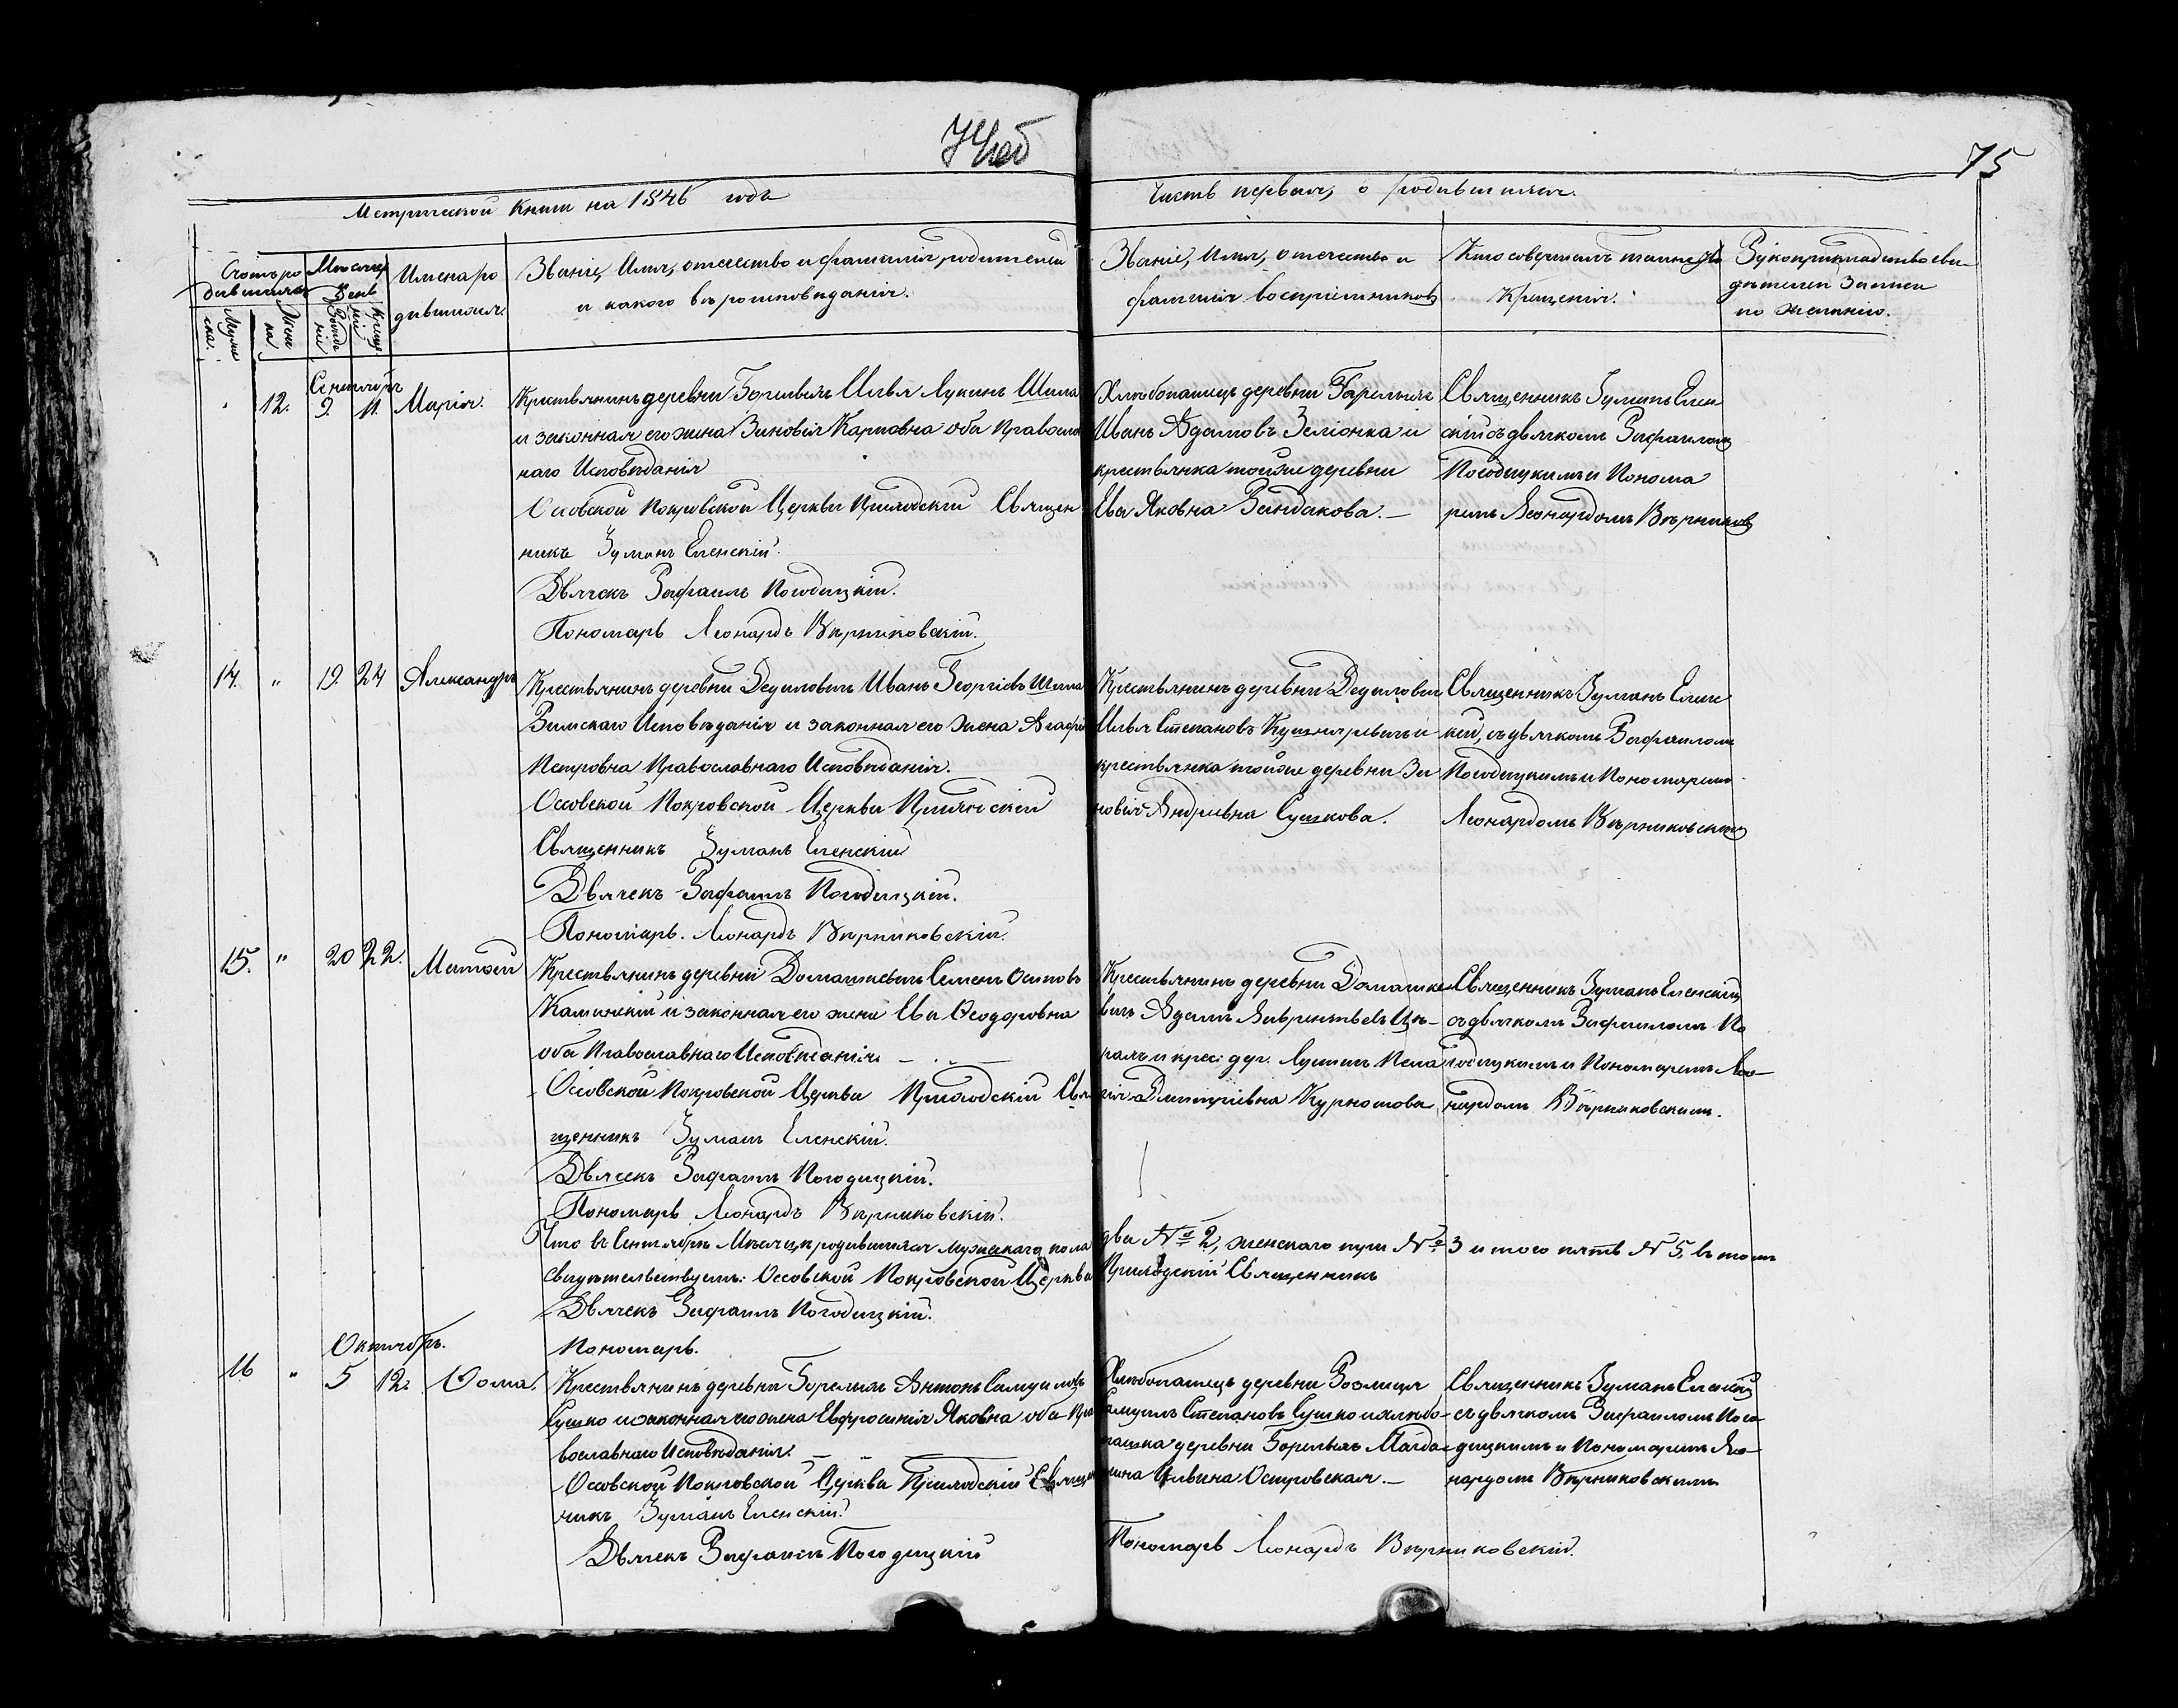 74об
75
Метрической Книги на 1846 годъ
Часть первая, о родившихся.
Счетъ ро
дившихся
Мужеска.
Женска
Мѣсяцъ
День
рожденія
крещенія
Имена ро
дившихся.
Званіе, Имя, отечество и фамилія родителей
и какого вѣроисповѣданія.
Званіе, Имя, отечество и
фамилія воспріемниковъ
Кто совершалъ таинство
Крещенія.
Рукоприкладство сви
дѣтелей записи
по желанію.
Сентябрь
12. 9 11. Марія.
Крестьянинъ деревни Илья Лукинъ
и законная его жена Зиновія Карповна оба Православ
наго Исповѣданія
Осовской Покровской Церкви Приходскій Священ
никъ Румянъ Еленскій.
Дьячекъ Рафаилъ Погодицкій.
Пономарь Леонардъ Вѣрниковскій.
Хлѣбопашецъ деревни
Иванъ Адамовъ Зеліонка и
крестьянка тойже деревни
Ева Яковна Рандакова. —
Священникъ Румянъ Елен
скій съ дьячкомъ Рафаиломъ
Погодицкимъ и Понома
ремъ Леонардомъ Вѣрников
14. " 19. 24 Александръ
Крестьянинъ деревни Дедиловичъ Иванъ Георгіевъ
Римскаго Исповѣданія и законная его жена Агафія
Петровна Православнаго Исповѣданія.
Осовской Покровской Церкви Приходскій
Священникъ Румянъ Еленскій
Дьячекъ Рафаилъ Погодицкій.
Пономарь. Леонардъ Вѣрниковскій.
Крестьянинъ деревни Дедиловичъ
Илья Степановъ Кушниревичъ и
крестьянка тойже деревни Зи
новія Андріевна Сушкова.
Священникъ Румянъ Елен
скій, съ дьячкомъ Рафаиломъ
Погодицкимъ и Пономаремъ
Леонардомъ Вѣрниковскимъ
15. " 20 22. Матѳей
Крестьянинъ деревни Домашкевичъ Семенъ Осиповъ
Каминскій и законная его жена Ева Ѳеодоровна
оба Православнаго Исповѣданія. —
Осовской Покровской Церкви Приходскій Свя
щенникъ Румянъ Еленскій.
Дьячекъ Рафаилъ Погодицкій.
Пономарь Леонардъ Вѣрниковскій.
Крестьянинъ деревни Домашке
вичъ Адамъ Лаврентьевъ
и крес: дер. Пела
гія Димитріевна Курнотова
Священникъ Румянъ Еленскій
съ дьячкомъ Рафаиломъ По
годицкимъ и Пономаремъ Лео
нардомъ Вѣрниковскимъ.
Что въ Сентябрѣ Мѣсяцѣ родившихся мужескаго пола два № 2, женскаго три № 3 и того пять № 5, въ томъ
свидѣтельствуемъ: Осовской Покровской Церкви Приходскій Священникъ
Дьячекъ Рафаилъ Погодицкій.
Пономарь.
Октябрь.
16 " 5 12. Ѳома.
Крестьянинъ деревни Антонъ Самуиловъ
Сушко и законная его жена Евфросинія Яковна оба Пра
вославнаго Исповѣданія. —
Осовской Покровской Церкви Приходскій Священ
никъ Румянъ Еленскій.
Дьячекъ Рафаилъ Погодицкій
Хлѣбопашецъ деревни
Самуилъ Степановъ Сушко и хлѣбо
пашка деревни Магда
лина Ильина Островская. —
Священникъ Румянъ Еленскій
съ дьячкомъ Рафаиломъ Пого
дицкимъ и Пономаремъ Лео
нардомъ Вѣрниковскимъ
Пономарь Леонардъ Вѣрниковскій.